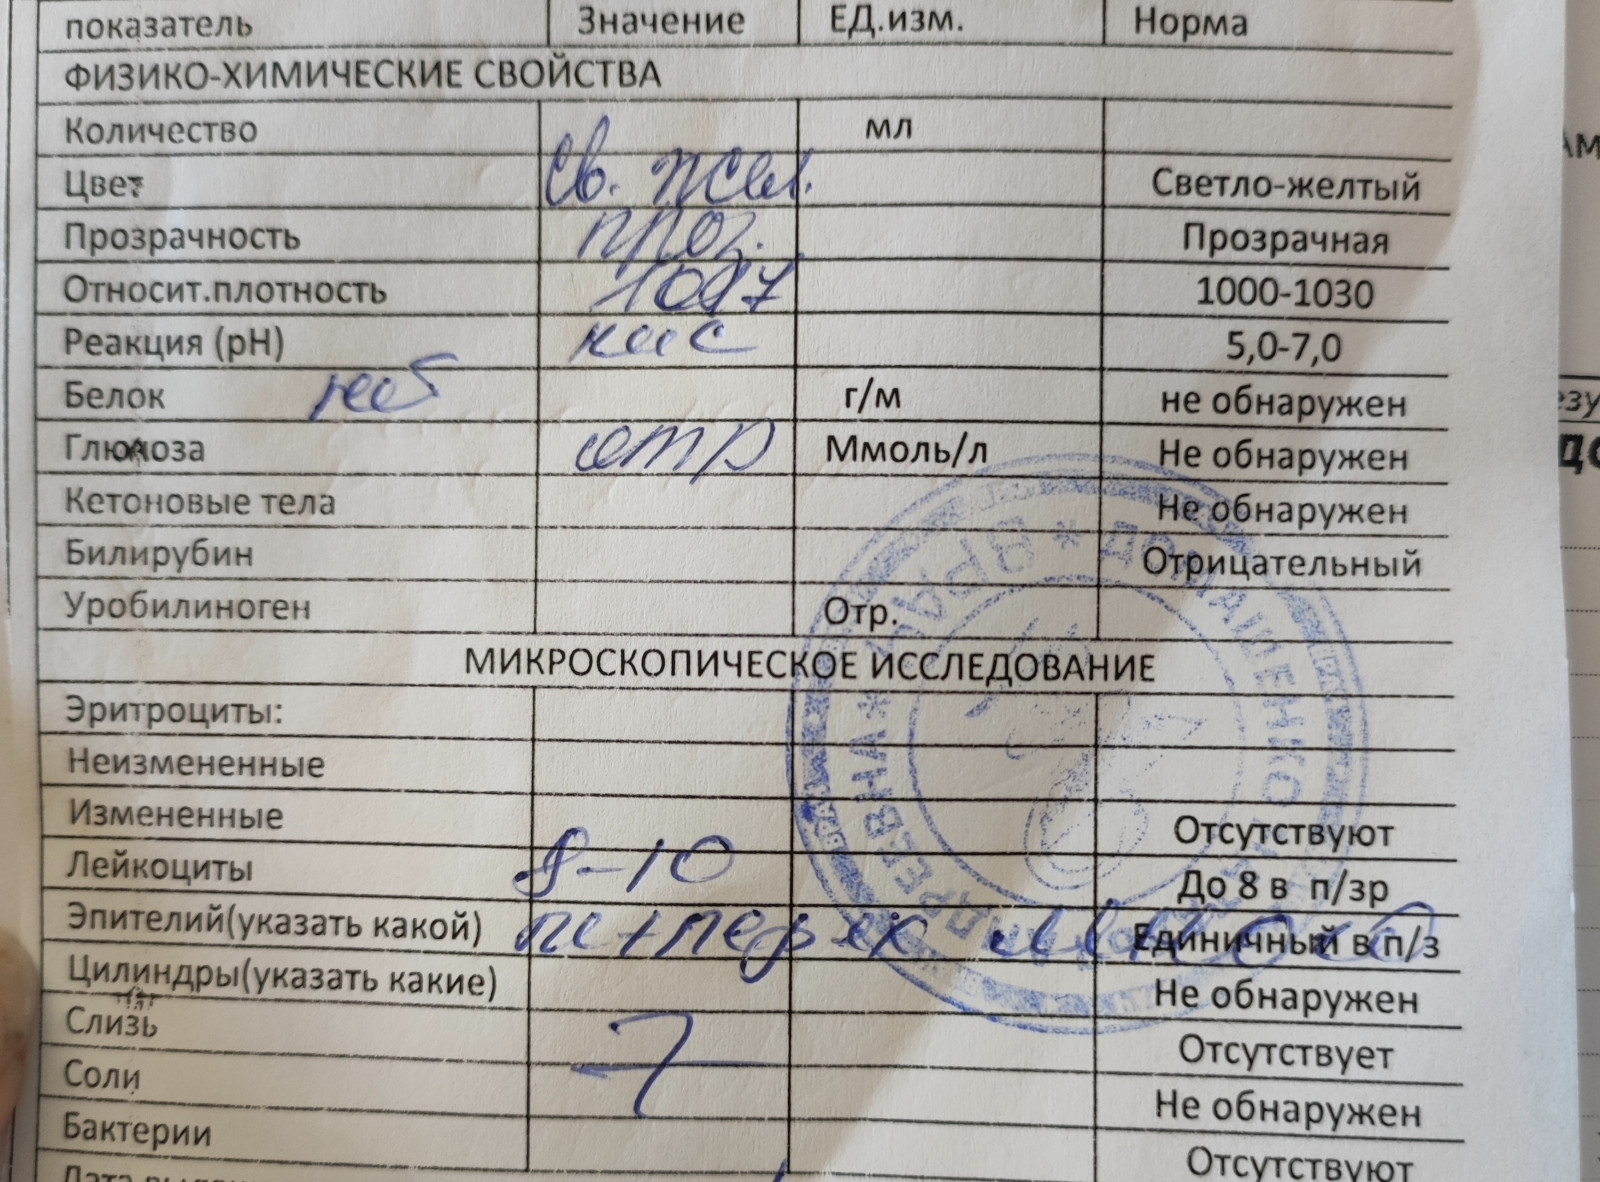 показатель Значение ЕД.изм. Норма
ФИЗИКО-ХИМИЧЕСКИЕ СВОЙСТВА
Количество мл
Цвет св. жел. Светло-желтый
Прозрачность проз. Прозрачная
Относит.плотность 1000-1030
Реакция (pH) кис 5,0-7,0
Белок г/м не обнаружен
Глюкоза отр Ммоль/л Не обнаружен
Кетоновые тела Не обнаружен
Билирубин Отрицательный
Уробилиноген Отр.
МИКРОСКОПИЧЕСКОЕ ИССЛЕДОВАНИЕ
Эритроциты:
Неизмененные
Измененные Отсутствуют
Лейкоциты 8-10 До 8 в п/зр
Эпителий(указать какой) много Единичный в п/з
Цилиндры(указать какие) Не обнаружен
Слизь Отсутствует
Соли Не обнаружен
Бактерии Отсутствуют
ВРАЧ * ДОМАШЕНКО